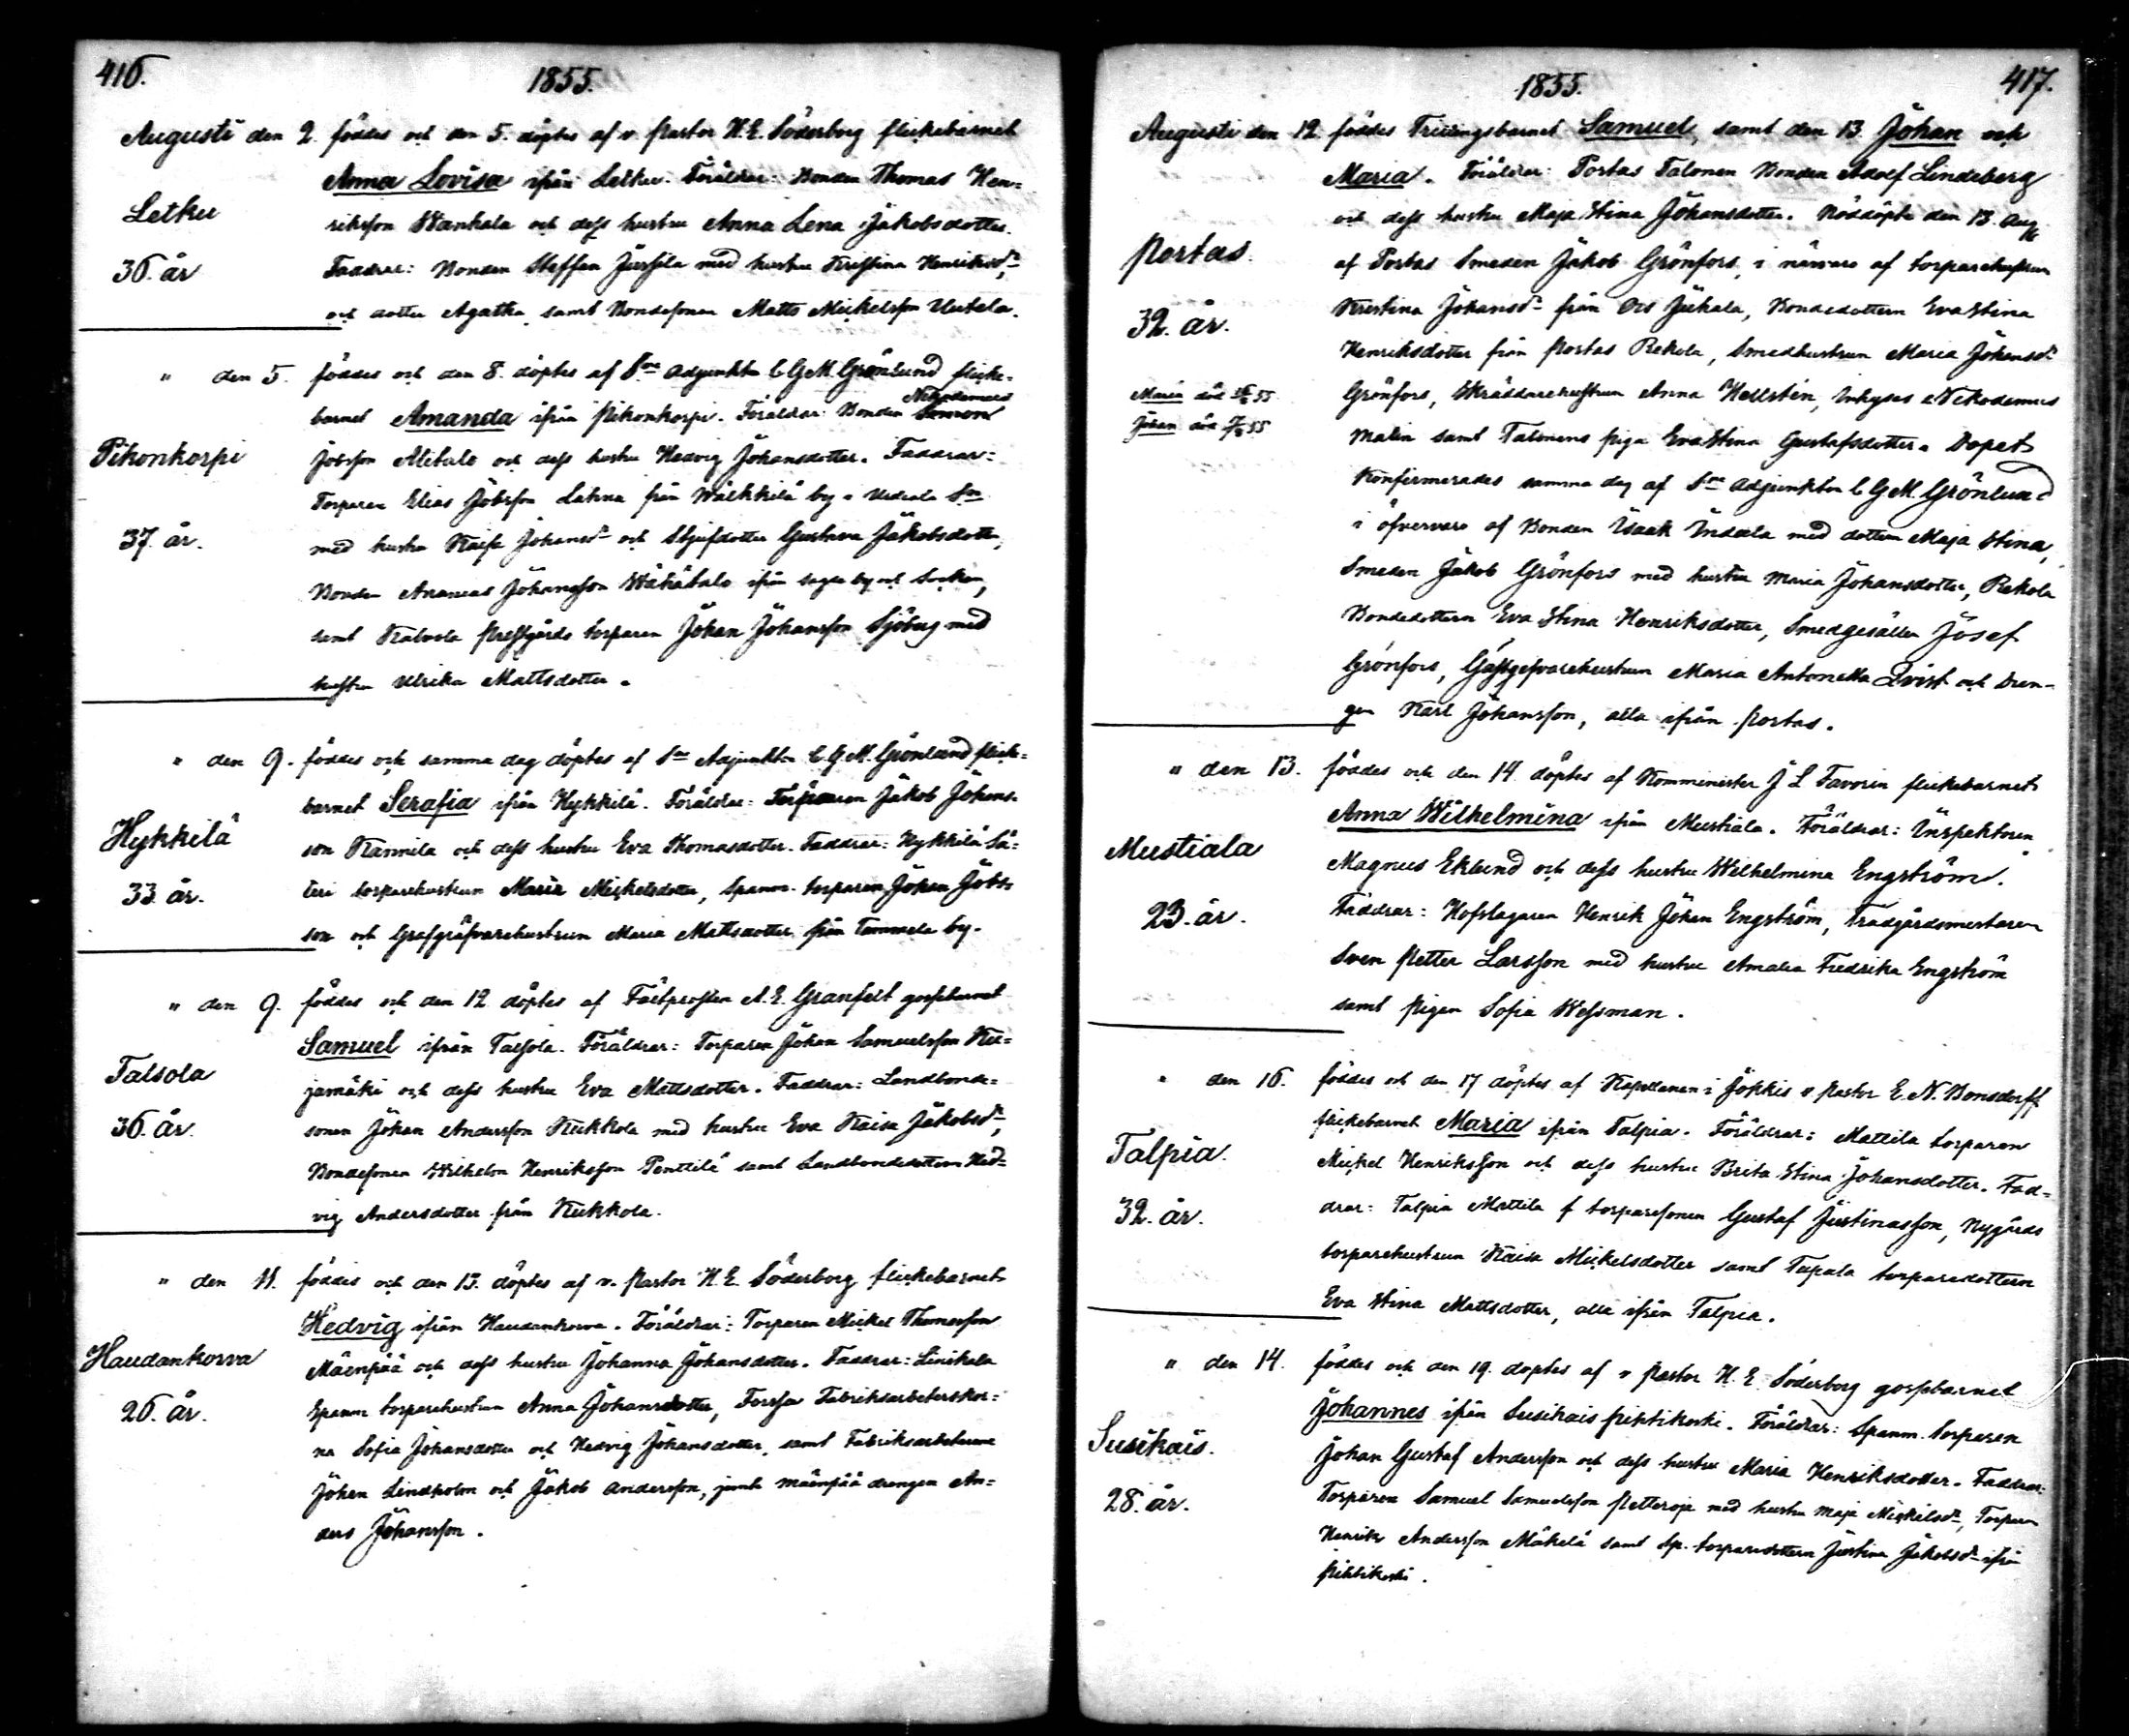 416.
1855.
Augusti den 2. föddes och den 5. döptes af v. Pastor H. E. Söderborg flickebarnet
Anna Lovisa ifrån Letku. Föräldrar: Bonden Thomas Hen=
Letku
riksson Wanhala och dess hustru Anna Lena Jakobsdotter.
36. år
Faddrar: Bonden Steffan Jussila med hustru Kristina Henriksdr,
och dotter Agatha samt Bondesonen Matts Mickelsson Uutela.
" den 5. föddes och den 8. döptes af Sne Adjunkten C G M. Grönlund flicke-
Nikodemus
barnet Amanda ifrån Pikonkorpi. Föräldrar: Bonden Simon
Pikonkorpi
Jobsson Alitalo och dess hustru Hedvig Johansdotter. Faddrar:
Torparen Elias Jobsson Lahna från Wälkkilä by i Urdiala Sn
37. år.
med hustru Kaisa Johansdr och Styfdotter Gustava Jakobsdotter,
Bonden Ananias Johansson Wähätalo ifrån sagde by och Socken,
samt Kalvola Prestgårds torparen Johan Johansson Sjöberg med
hustru Ulrika Mattsdotter.
" den 9. föddes och samma dag döptes af Sne Adjunkten C G M. Grönlund flick=
barnet Serafia ifrån Hykkilä. Föräldrar: Torparen Jakob Johans-
Hykkilä
son Kannila och dess hustru Eva Thomasdotter. Faddrar: Hykkilä Sä=
33. år.
teri torparehustrun Maria Mickelsdotter, Spanm. torparen Johan Jobs-
son och Grafgräfvarehustrun Maria Mattsdotter från Tammela by.
" den 9. föddes och den 12 döptes af Fältprosten A. E. Granfelt gossebarnet
Samuel ifrån Talsola. Föräldrar: Torparen Johan Samuelsson Ku=
Talsola
jamäki och dess hustru Eva Mattsdotter. Faddrar: Landbonde=
36. år.
sonen Johan Andersson Kukkola med hustru Eva Kaisa Jakobsdr,
Bondesonen Wilhelm Henriksson Penttilä samt Landbondedottern Hed=
vig Andersdotter från Kukkola.
" den 11. föddes och den 13. döptes af v. Pastor H. E. Söderborg flickebarnet
Hedvig ifrån Haudankorva. Föräldrar: Torparen Mickel Thomasson
Haudankorva
Mäenpää och dess hustru Johanna Johansdotter. Faddrar: Linikala
26. år.
Spanm torparehustrun Anna Johansdotter, Forssa Fabriksarbeterskor=
na Sofia Johansdotter och Hedvig Johansdotter, samt Fabriksarbetarne
Johan Lindholm och Jakob Andersson, jemte Mäenpää drengen An=
ders Johansson.
1855.
417.
Augusti den 12. föddes Trillingsbarnet Samuel, samt den 13. Johan och
Maria. Föräldrar: Portas Talonen Bonden Adolf Lindeberg
och dess hustru Maja Stina Johansdotter. Nöddöpte den 13. Aug
Portas.
af Portas Smeden Jakob Grönfors, i närvaro af torparehustrun
32. år.
Kristina Johansdr från Ois Jukala, Bondedottern Eva Stina
Henriksdotter från Portas Rekola, Smedhustrun Maria Johansdr
Maria död 55
Grönfors, Skräddarehustrun Anna Hellstén, Inhyses Nikodemus
Johan död 55
Malin samt Talonens piga Eva Stina Gustafsdotter. Dopet
Konfirmerades samma dag af Sne Adjunkten C G M. Grönlund
i öfvervaro af Bonden Isaak Indola med dottern Maja Stina,
Smeden Jakob Grönfors med hustru Maria Johansdotter, Rekola
Bondedottern Eva Stina Henriksdotter, Smedgesällen Josef
Grönfors, Gästgifvarehustrun Maria Antonetta Qvist och Dren=
gen Karl Johansson, alla ifrån Portas.
" den 13. föddes och den 14. döptes af Komminister J L Favorin flickebarnet
Anna Wilhelmina ifrån Mustiala. Föräldrar: Inspektoren
Mustiala
Magnus Eklund och dess hustru Wilhelmina Engström.
23. år.
Faddrar: Hofslagaren Henrik Johan Engström, Trädgårdsmästaren
Sven Petter Larsson med hustru Amalia Fredrika Engström
samt Pigan Sofia Wessman.
" den 16. föddes och den 17 döptes af Kapellanen i Jokkis v Pastor E. N. Bonsdorff
flickebarnet Maria ifrån Talpia. Föräldrar: Mattila torparen
Talpia.
Mickel Henriksson och dess hustru Brita Stina Johansdotter. Fad=
32. år.
drar: Talpia Mattila f torparesonen Gustaf Justinasson, Nygårds
torparehustrun Kaisa Mickelsdotter samt Tupala torparedottern
Eva Stina Mattsdotter, alla ifrån Talpia.
" den 14. föddes och den 19. döptes af v Pastor H. E. Söderborg gossebarnet
Johannes ifrån Susikais Pihtikoski. Föräldrar: Spanm. torparen
Susikais.
Johan Gustaf Andersson och dess hustru Maria Henriksdotter. Faddrar:
28. år.
Torparen Samuel Samuelsson Petteroja med hustru Maja Mickelsdr, Torparen
Henrik Andersson Mäkelä samt Sp. torparedottern Justina Jakobsdr ifrån
Pihtikoski.